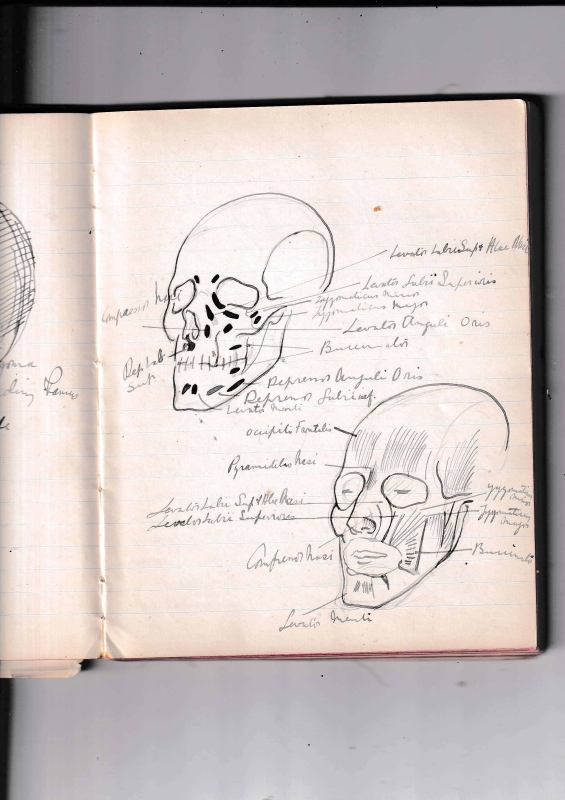 Levator Labii Sup & Alae Nasi
Levator Labii Superioris
Compressor Nasi
Zygomaticus Minor
Zygomaticus Major
Levator Anguli Oris
Buccinator
Dep Labi
Depressor Anguli Oris
Depressor Labii inf.
Levator Menti
Occipito Frontalis
Pyramidilas Nasi
Levator Labii Sup & Alae Nasi
Levator Labii Superioris
Zygomaticus
minor
Zygomaticus
major
Compressor Nasi
Buccinator
Levator Menti